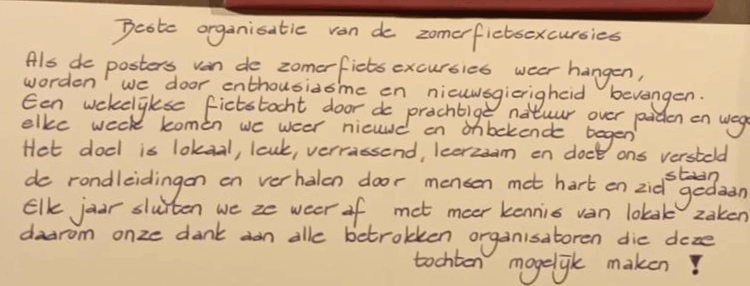 Beste organisatie van de zomerfietsexcursies
Als de posters van de zomerfietsexcursies weer hangen,
worden we door enthousiasme en nieuwsgierigheid bevangen.
Een wekelijkse fietstocht door de prachtige natuur over paden en wege
elke week komen we weer nieuwe en onbekende tegen
Het doel is lokaal, leuk, verrassend, leerzaam en doet ons versteld
staan
de rondleidingen en verhalen door mensen met hart en ziel gedaan
Elk jaar sluiten we ze weer af met meer kennis van lokale zaken
daarom onze dank aan alle betrokken organisatoren die deze
tochten mogelijk maken !